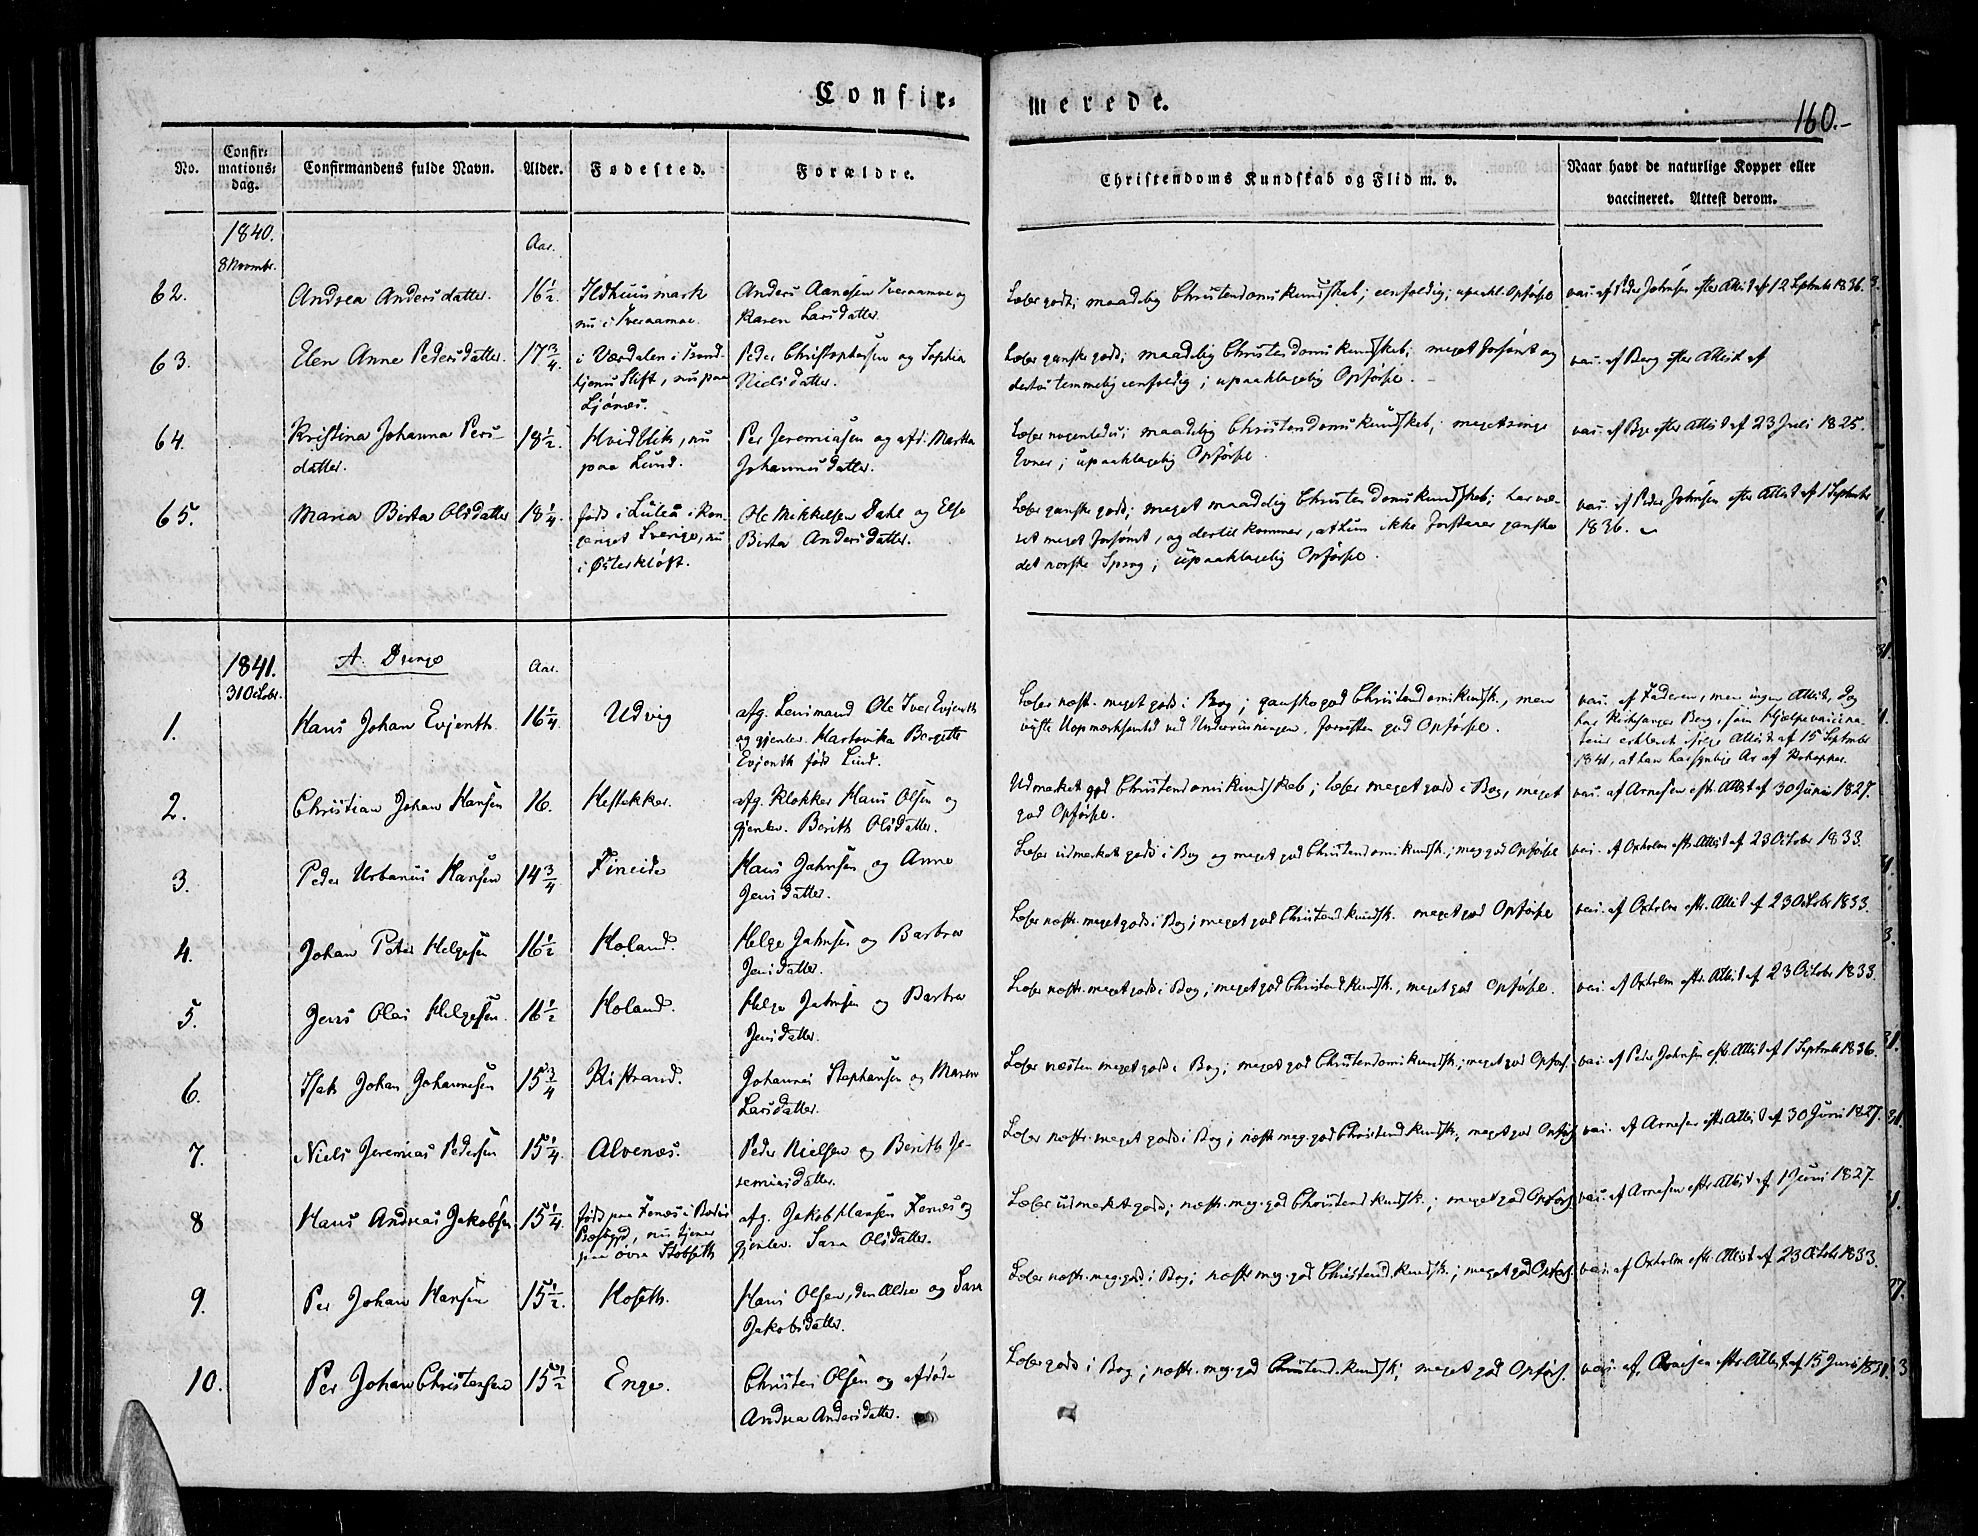 Confir-
merede.
160.-
No.
Confir-
mations-
dag.
Confirmandens fulde Navn.
Alder.
Fødested.
Forældre.
Christendoms Kundskab og Flid m. v.
Naar havt de naturlige Kopper eller
vaccineret. Attest derom.
1840.
8 Novmbr.
Aar.
62.
Andrea Andersdatter.
16½
Ildhuusmark
nu i Tveraamoe.
Anders Aanesen Tveraamoe og
Karen Larsdatter.
Læser godt; maadelig Christendomskundskab; eenfoldig; upaakl. Opførsel
vac. af Peder Johnsen efter Attest af 12 Septmbr 1836.
63.
Elen Anne Pedersdatter.
17¾
i Værdalen i Trond-
hjems Stift, nu paa
Ljønæs.
Peder Christophersen og Sophia
Nielsdatter.
Læser ganske godt; maadelig Christendomskundskab; meget forsømt og
desuden temmelig eenfoldig; upaaklagelig Opførsel.
vac. af Berg efter Attest af
64.
Kristina Johanna Pers-
datter.
18½.
Hvidblik, nu
paa Lund.
Per Jeremiasen og afd. Martha
Johannesdatter.
Læser nogenledes; maadelig Christendomskundskab; meget ringe
Evner; upaaklagelig Opførsel.
vac. af Bye efter Attest af 23 Juli 1825.
65.
Maria Birta Olsdatter
18¼.
født i Luleå i Kon-
geriget Sverige, nu
i Østerkløft.
Ole Mikkelsen Dahl og Else
Birta Andersdatter.
Læser ganske godt; meget maadelig Christendomskundskab; har væ-
ret meget forsømt, og dertil kommer, at hun ikke forstaaer ganske
det norske Sprog; upaaklagelig Opførsel.
vac. af Peder Johnsen efter Attest af 1 Septmbr
1836.
1841.
31 Octobr.
A. Drenge
Aar.
1.
Hans Johan Evjenth.
16¼
Udvig
afg. Lensmand Ole Iver Evjenth
og gjenlev. Hartvika Bergette
Evjenth født Lund.
Læser næst. meget godt i Bog; ganske god Christendomskundsk., men
viste Uopmærksomhed ved Underviisningen, forresten god Opførsel.
vac. af Faderen, men ingen Attest, dog
har Kirkesanger Berg, som Hjelpevaccina-
teur erklæret ifølge Attest af 15 Septmber
1841, at han har synlige Ar af Kokopper.
2.
Christian Johan Hansen
16.
Hestekker.
afg. Klokker Hans Olsen og
gjenlev. Berith Olsdatter.
Udmærket god Christendomskundskab; læser meget godt i Bog, meget
god Opførsel.
vac. af Arnesen eftr. Attest af 30 Juni 1827.
3.
Peder Urbanus Hansen
14¾
Fineide
Hans Jahnsen og Anne
Jensdatter.
Læser udmærket godt i Bog og meget god Christendomskundsk.; meg. god Opførsel
vac. af Oxholm eftr. Attest af 23 October 1833.
4.
Johan Peter Helgesen
16½
Holand.
Helge Jahnsen og Barbra
Jensdatter.
Læser næstn. meget godt i Bog; meget god Christend. kundsk. meget god Opførsel
vac. af Oxholm eftr. Attest af 23 October 1833.
5.
Jens Olai Helgesen.
16½
Holand.
Helge Jahnsen og Barbra
Jensdatter.
Læser næstn. meget godt i Bog; meget god Christend. kundsk., meget god Opførsel.
vac. af Oxholm eftr. Attest af 23 Octobr 1833.
6.
Isak Johan Johannesen
15¾
Kistrand.
Johannes Stephansen og Maren
Larsdatter.
Læser næsten meget godt i Bog; meget god Christendomskundsk.; meget god Opførs.
vac. af Peder Johnsen eftr. Attest af 1 Septmbr 1836.
7.
Niels Jeremias Pedersen
15¼.
Alvenæs.
Peder Nielsen og Berith Je-
remiasdatter.
Læser næstn. meget godt i Bog; næstn. meg. god Christend. kundsk.; meget god Opførs.
vac. af Arnesen eftr. Attest af 30 Juni 1827.
8
Hans Andreas Jakobsen
15¼.
født paa Fenæs i Bodø
Præstegjd, nu tjener
paa øvre Stobseth
afg. Jakob Hansen Fenæs og
gjenlev. Sara Olsdatter.
Læser udmærket godt; næstn. meg. god Christend. kundsk.; meget god Opførs.
vac. af Arnesen eftr. Attest af 1 Juni 1827.
9.
Per Johan Hansen
15½.
Hoseth.
Hans Olsen, den Ældre og Sara
Jakobsdatter.
Læser næstn. meg. godt i Bog; næstn. meg. god Christend. kundsk.; meget god Opførs.
vac. af Oxholm eftr. Attest af 23 Octobr 1833.
10.
Per Johan Christensen
15½
Enge.
Christen Olsen og afdøde
Andrea Andersdatter.
Læser godt i Bog; næstn. meg. god Christend. kundsk; meget god Opførs.
vac. af Arnesen eftr. Attest af 15 Juni 1831.